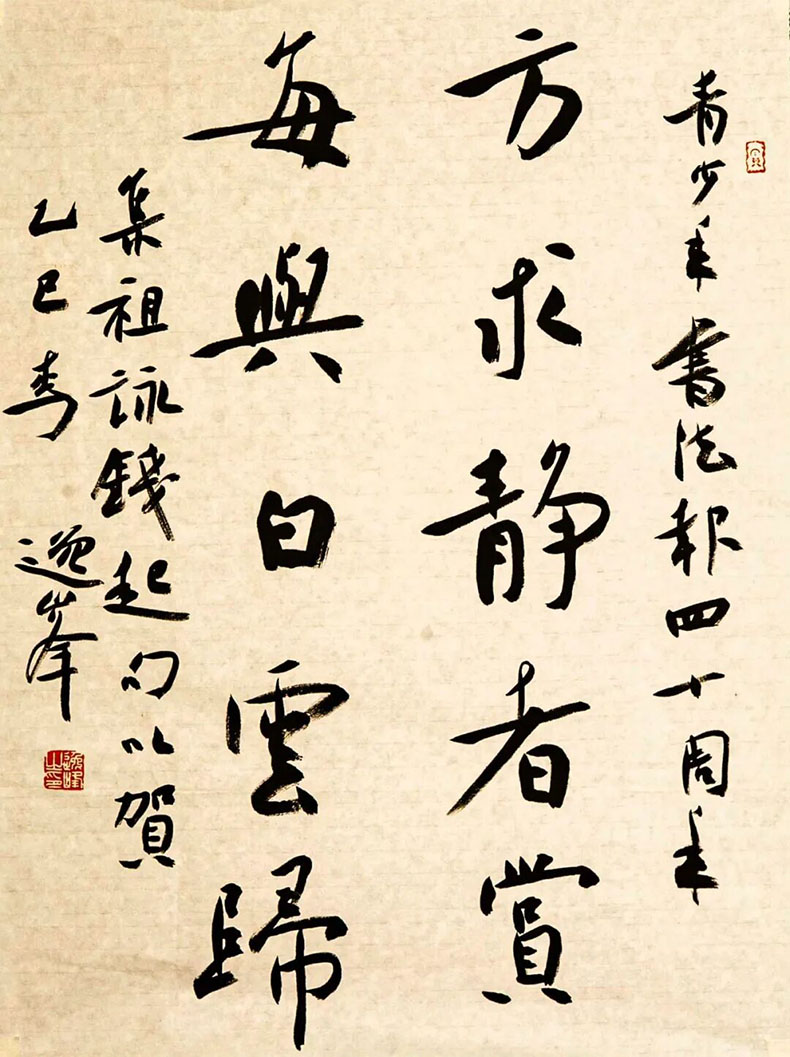 青少年书法报四十周年
方求静者賞
每與白雲歸
集祖詠錢起句以賀
乙巳春
逸峰